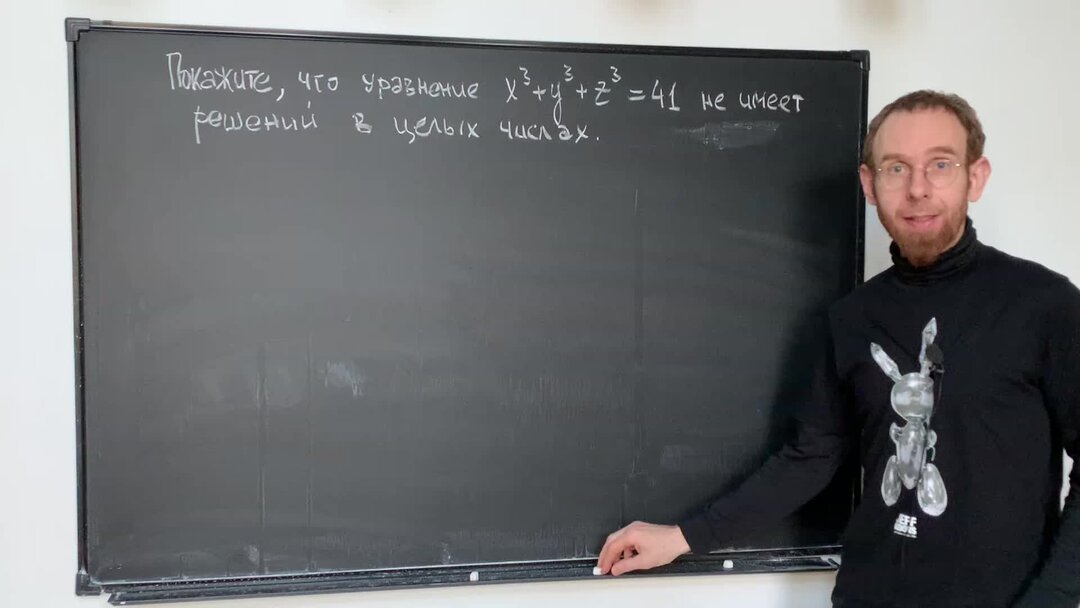 Покажите, что уравнение x³+y³+z³=41 не имеет
решений в целых числах.
JEFF